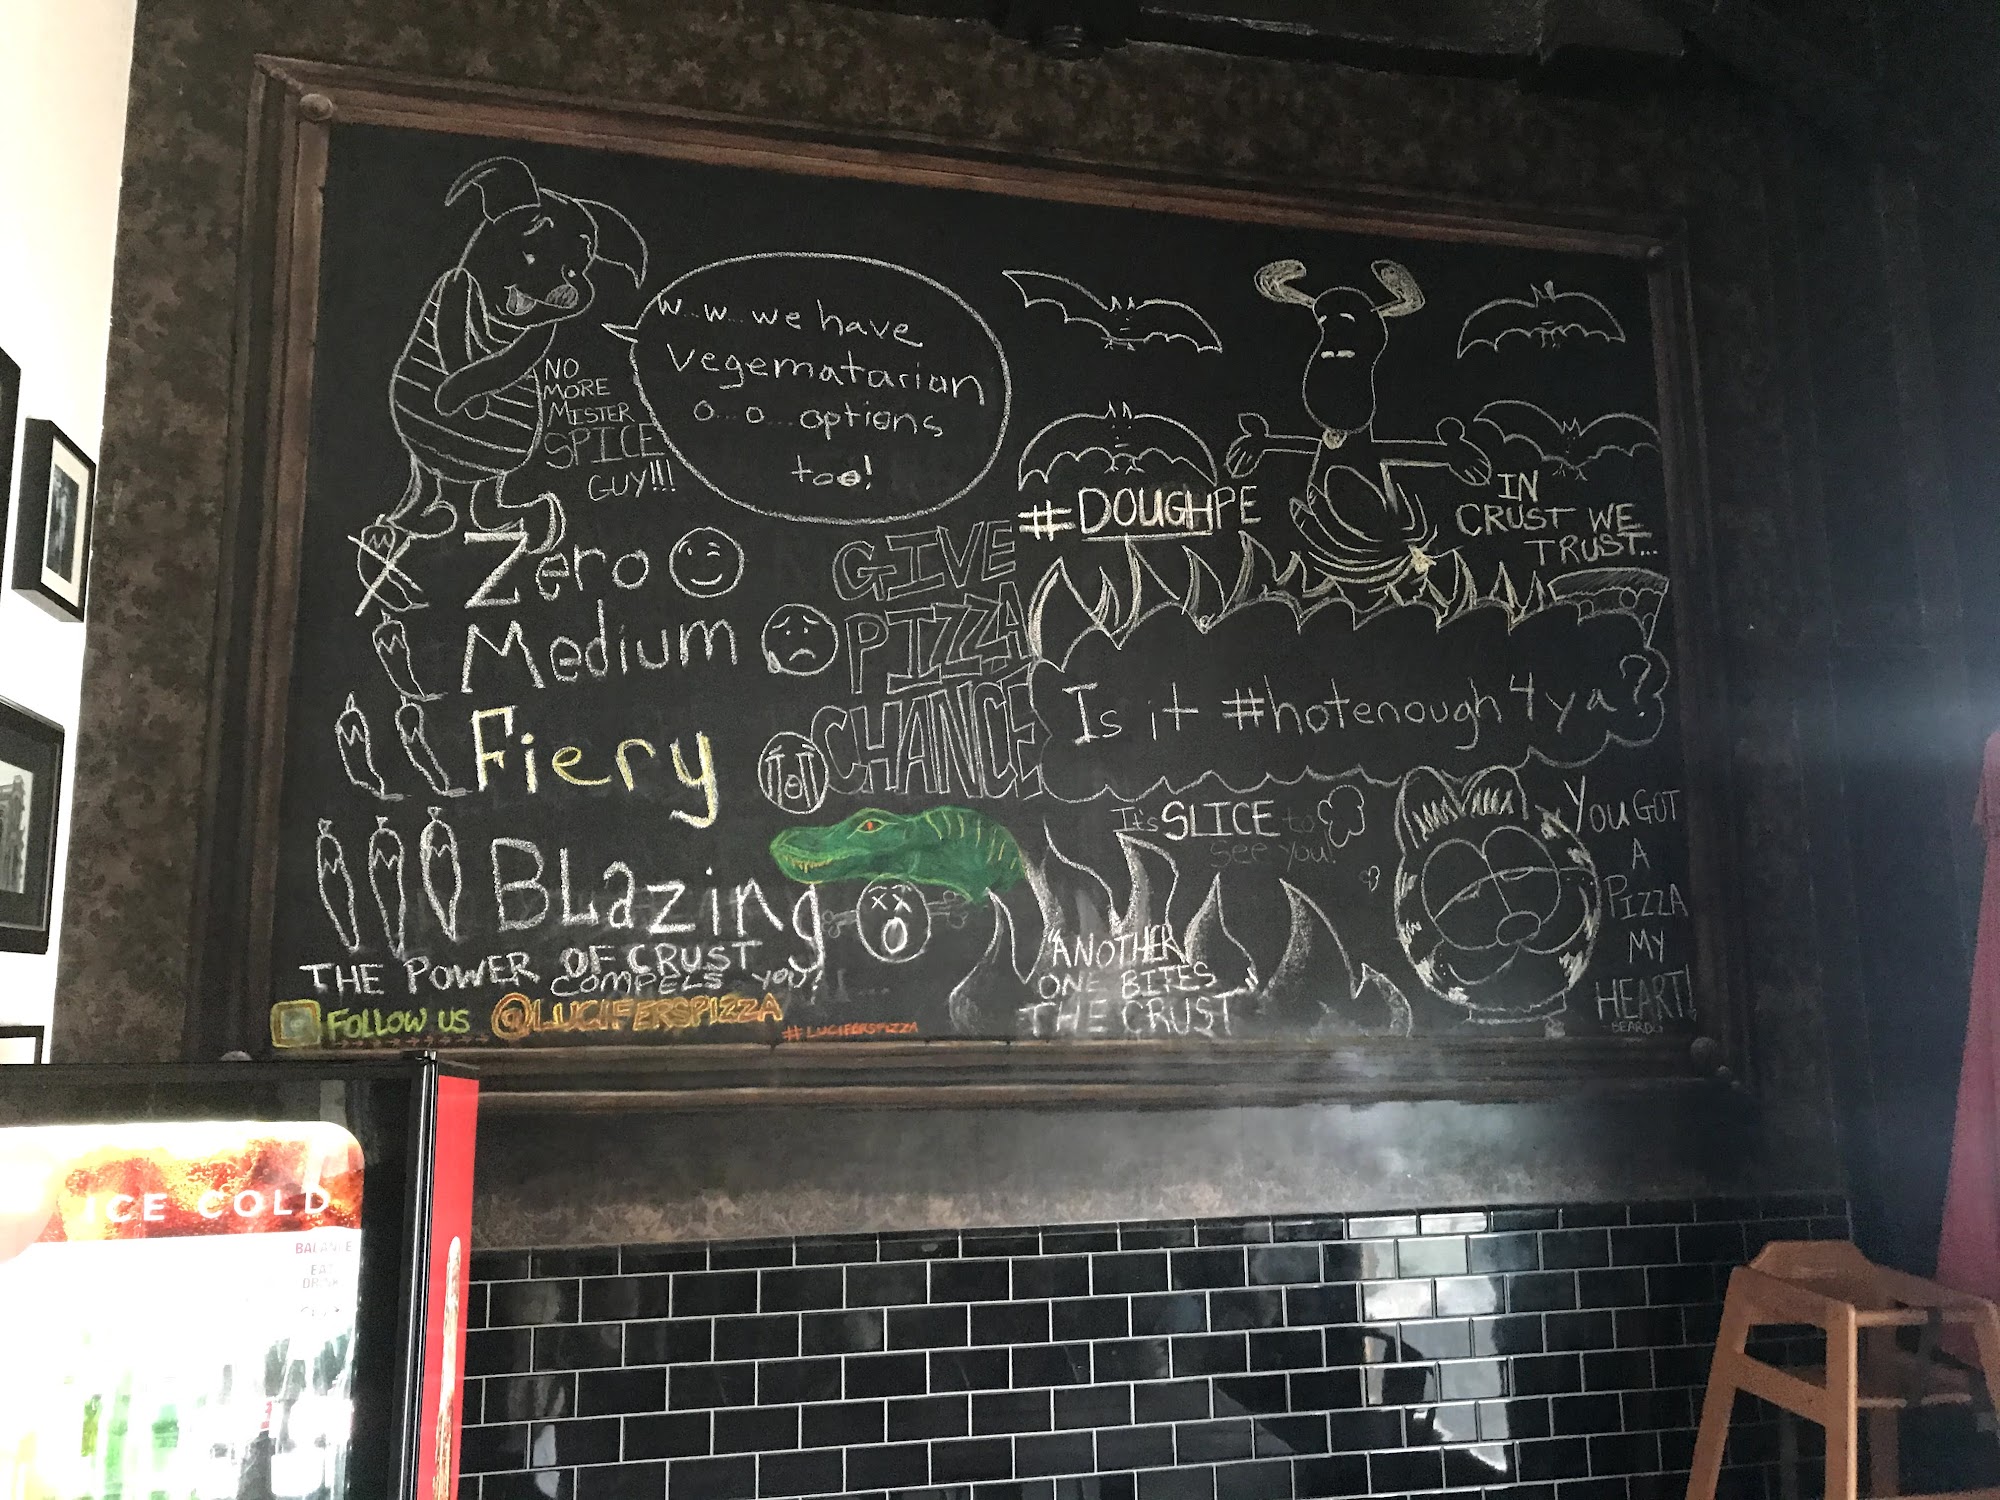 w...w...we have
vegematarian
o...o...options
too!
NO
MORE
MISTER
SPICE
GUY!!!
#DOUGHPE
IN
CRUST WE
TRUST...
Zero
Medium
Fiery
BLazing
GIVE
PIZZA
CHANCE
Is it #hotenough4ya?
It's SLICE to
see you!
YOU GOT
A
PIZZA
MY
HEART!
-BEARDO
"ANOTHER
ONE BITES"
THE CRUST
THE POWER OF CRUST
COMPELS YOU!
FOLLOW US @LUCIFERSPIZZA
#LUCIFERSPIZZA
ICE COLD
BALANCE
EAT
DRINK